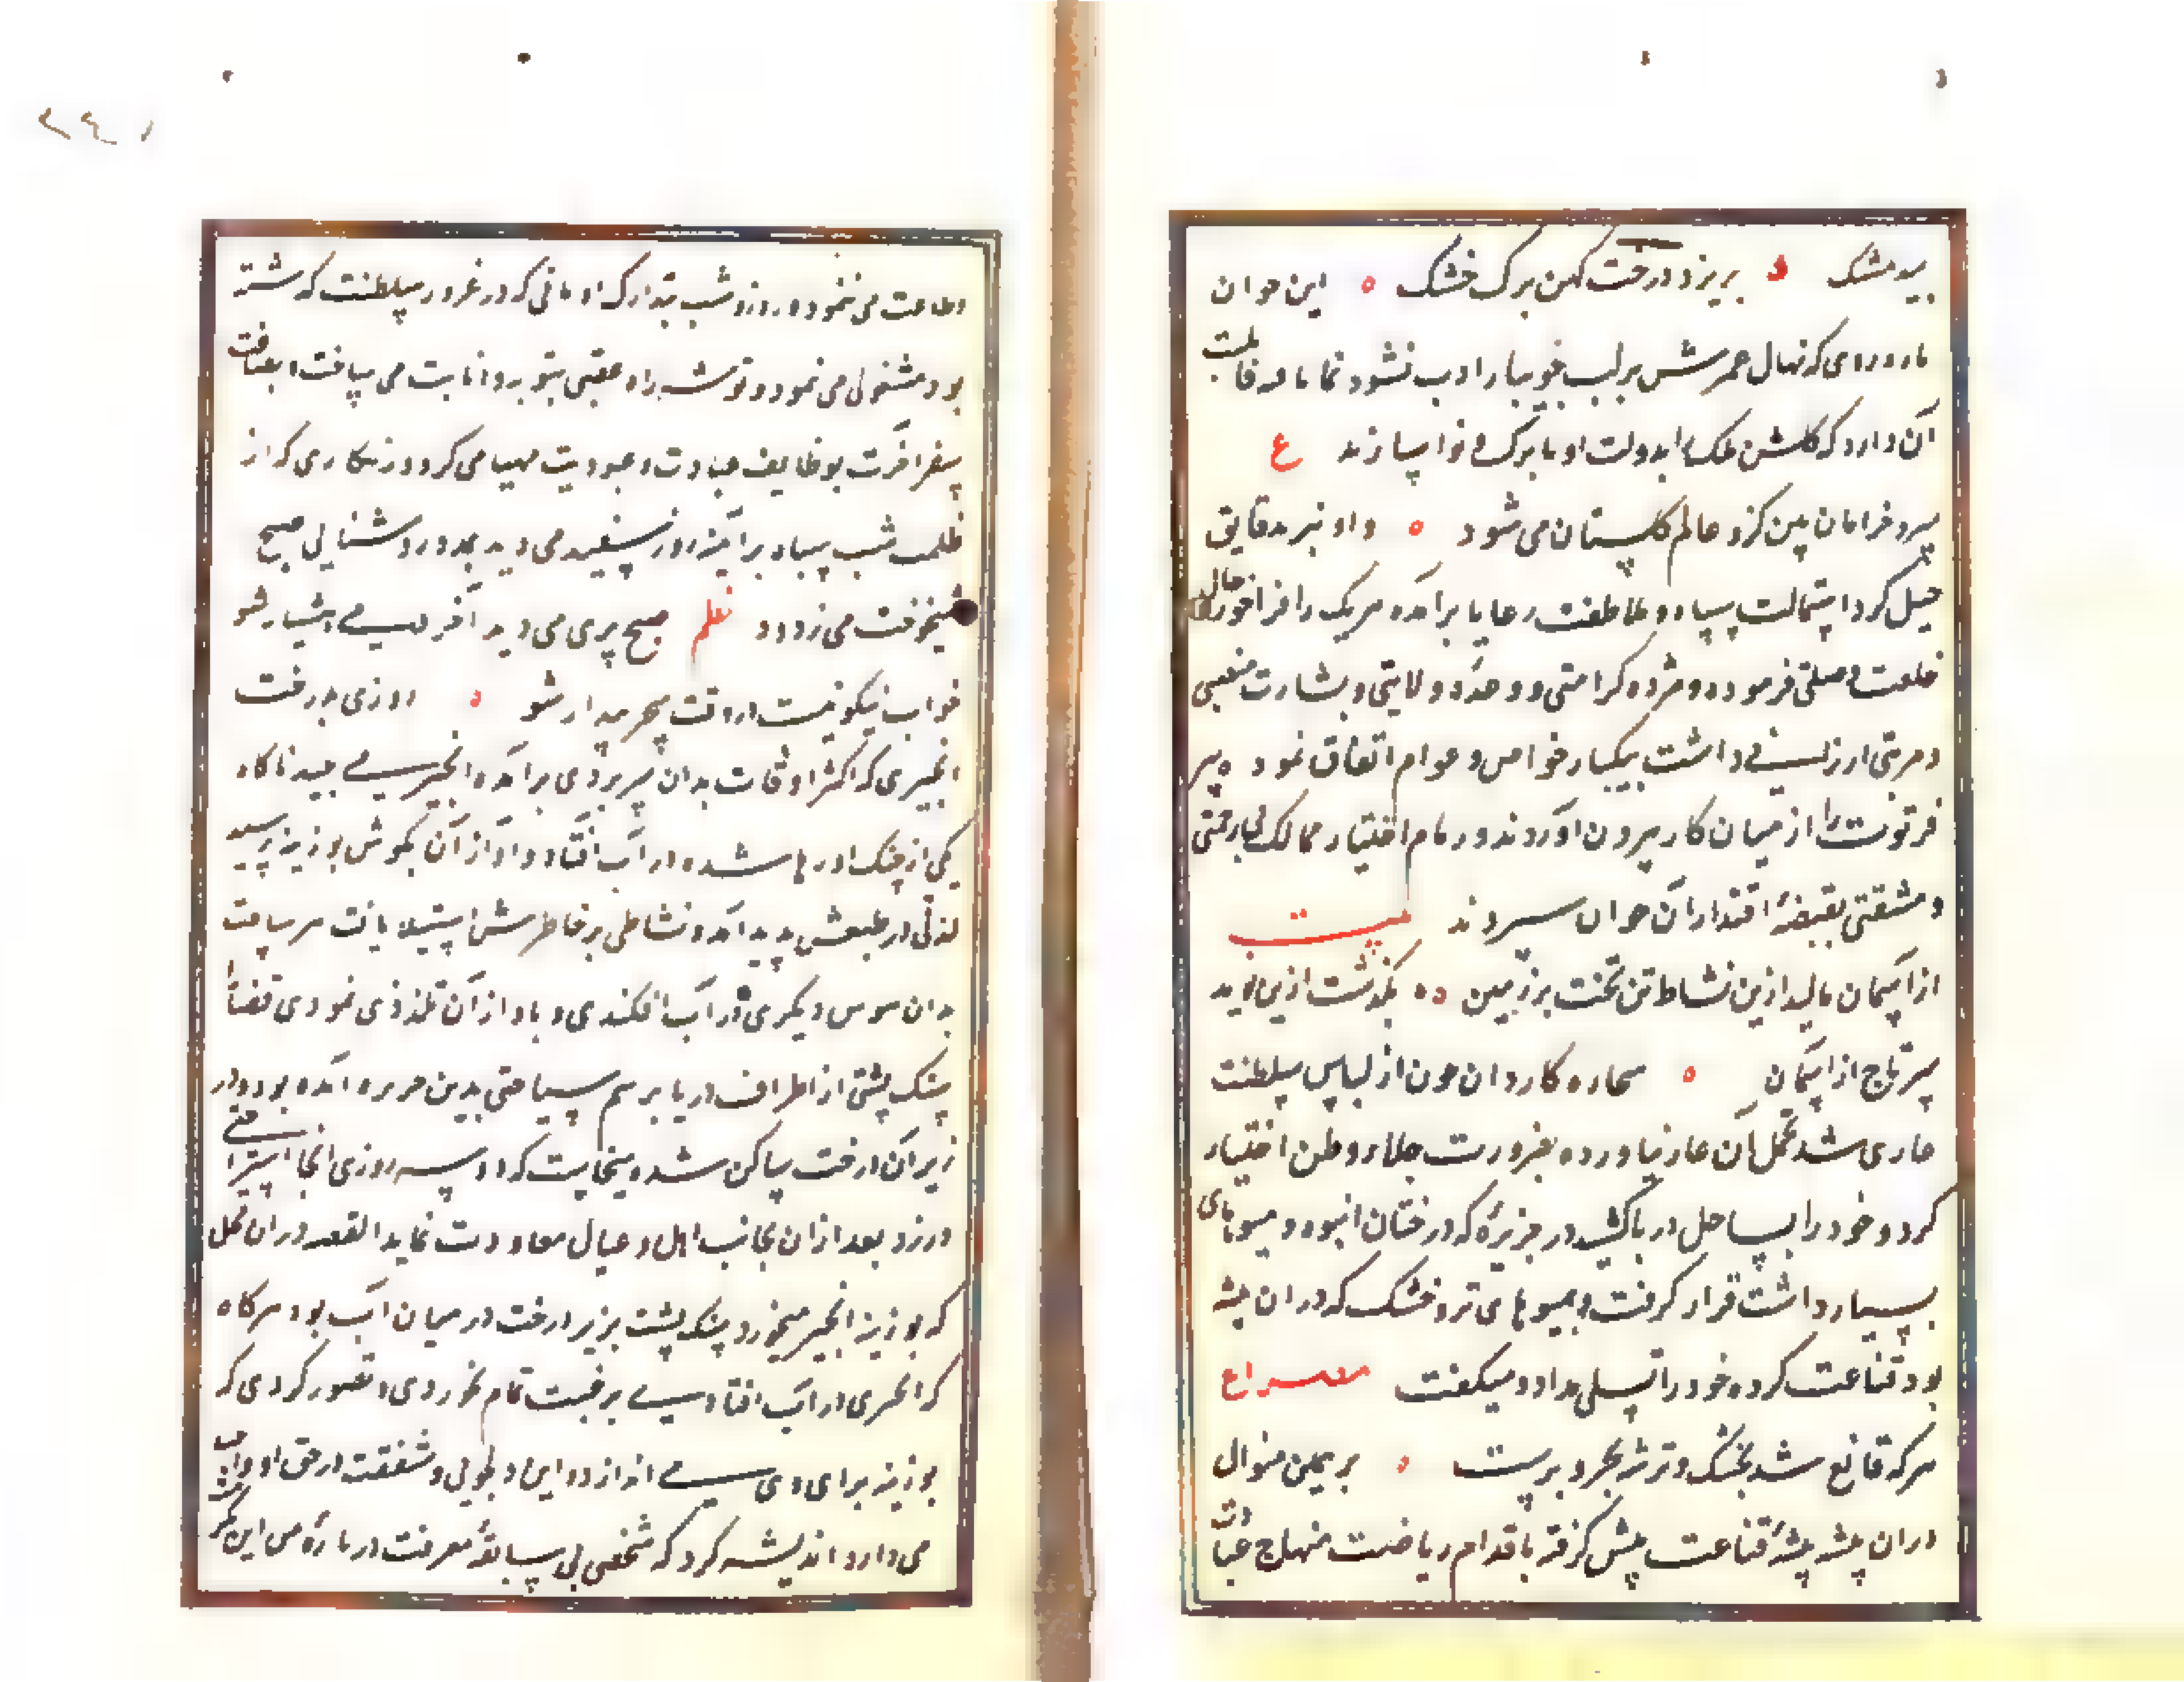 بید مشک ه بریزد درخت کهن برک خشک ه این جوان
تازه روی که نهال عمرش بر لب جویبار ادب نشو و نما یافته قابلیت
آن دارد که کلشن ملک را بدولت او با برک و نوا سازند ع
سرو خرامان ببین کزو عالم کلستان می شود ه و او نیز بدقایق
حیل کرد استمالت سپاه و ملاطفت رعایا برآمده هریک را فراخور حال
خلعت و صلتی فرموده و مژده کرامتی و وعده ولایتی و بشارت منصبی
و مرتبتی ارزانی داشت بیکبار خواص و عوام اتفاق نمود ه پیر
فرتوت را از میان کار بیرون آوردند و زمام اختیار ممالک بی زحمتی
و مشقتی بقبضهٔ اقتدار آن جوان سپردند بیت
از آسمان بالید ازین نشاط تن تخت بر زمین ه ه بگذشت ازین نوید
سر تاج از آسمان ه بیچاره کاردان چون از لباس سلطنت
عاری شد تحمل آن عار نیاورده بضرورت جلاء وطن اختیار
کرد و خود را بساحل دریا کشید در جزیرهٔ که درختان انبوه و میوهای
بسیار داشت قرار کرفت و بمیوهای تر و خشک که در ان بیشه
بود قناعت کرده خود را تسلی میداد و میکفت مصراع
هرکه قانع شد بخشک و تر شه بحر و برست ه بر همین منوال
در ان بیشه پیشهٔ قناعت پیش کرفته باقدام ریاضت منهاج عبادت
و طاعت می پیمود و روز و شب بتدارک اوقاتی که در غرور سلطنت کذشته
بود مشغولی می نمود و توشه راه عقبی بتوبه و انابت می ساخت و بضاعت
سفر آخرت بوظایف عبادت و عبودیت مهیا می کرد و زنکاری که از
ظلمت شب سیاه بر آینه روز سفید می دید بدو روشنایی صبح
شیخوخت می زدود نظم صبح پیری می دمد آخر دمی هشیار شو
خواب نیکو نیست در وقت سحر بیدار شو ه روزی بدرخت
انجیری که اکثر اوقات بدان بسر بردی برآمده انجیر می چید ناکاه
یکی از چنک او رها شده در آب افتاد و آواز آن بکوش بوزینه رسید
لذتی در طبعش پدید آمد و نشاطی بر خاطرش استیلا یافت هر ساعت
بدان هوس دیکری در آب افکندی و بآواز آن تلذذی نمودی قضا را
سنک پشتی از اطراف دریا برسم سیاحتی بدین جزیره آمده بود و در
زیر آن درخت ساکن شده میخواست که دو سه روزی آنجا استراحتی
ورزد بعد از ان بجانب اهل و عیال معاودت نماید القصه در ان محل
که بوزینه انجیر میخورد سنک پشت بزیر درخت در میان آب بود هرکاه
که انجیری در آب افتادی برغبت تمام بخوردی و تصور کردی که
بوزینه برای وی می اندازد و این دلجویی و شفقت در حق او واجب
می دارد اندیشه کرد که شخصی بی سابقهٔ معرفت در بارهٔ من این مکرمت